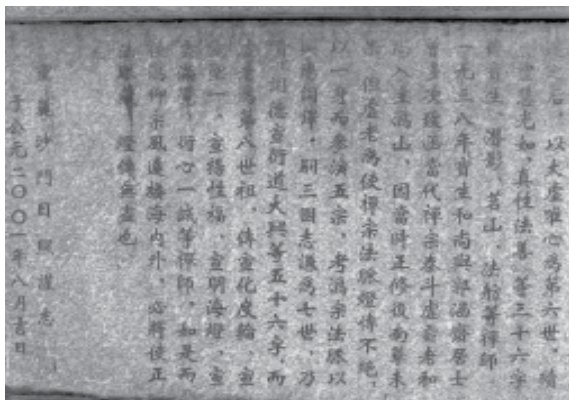 之后,以太虛唯心為第六世,續
慧光如,真性法善,等三十六字
首生、潛影、若山、法航等禪師
一九三八年首生和尚與郭涵齋居士
曾多次致函當代禪宗泰斗虛雲老和
尚入主溈山,因當時正修復南華未
果。但虛老為使禪宗法脈燈傳不絕,
以一身而參演五宗,考溈宗法脈以
詞鐸,嗣三圓志謙為七世,乃
詞德宣衍道大興等五十六字,而
為第八世祖。傳宣化度輪、宣
聖一、宣揚性福、宣明海燈、宣
雲滿覺,衍心一誠等禪師。如是而
後溈仰宗風遠播海內外,必將使正
法眼藏燈傳無盡也
沙門謹志
于公元二〇〇一年八月吉日